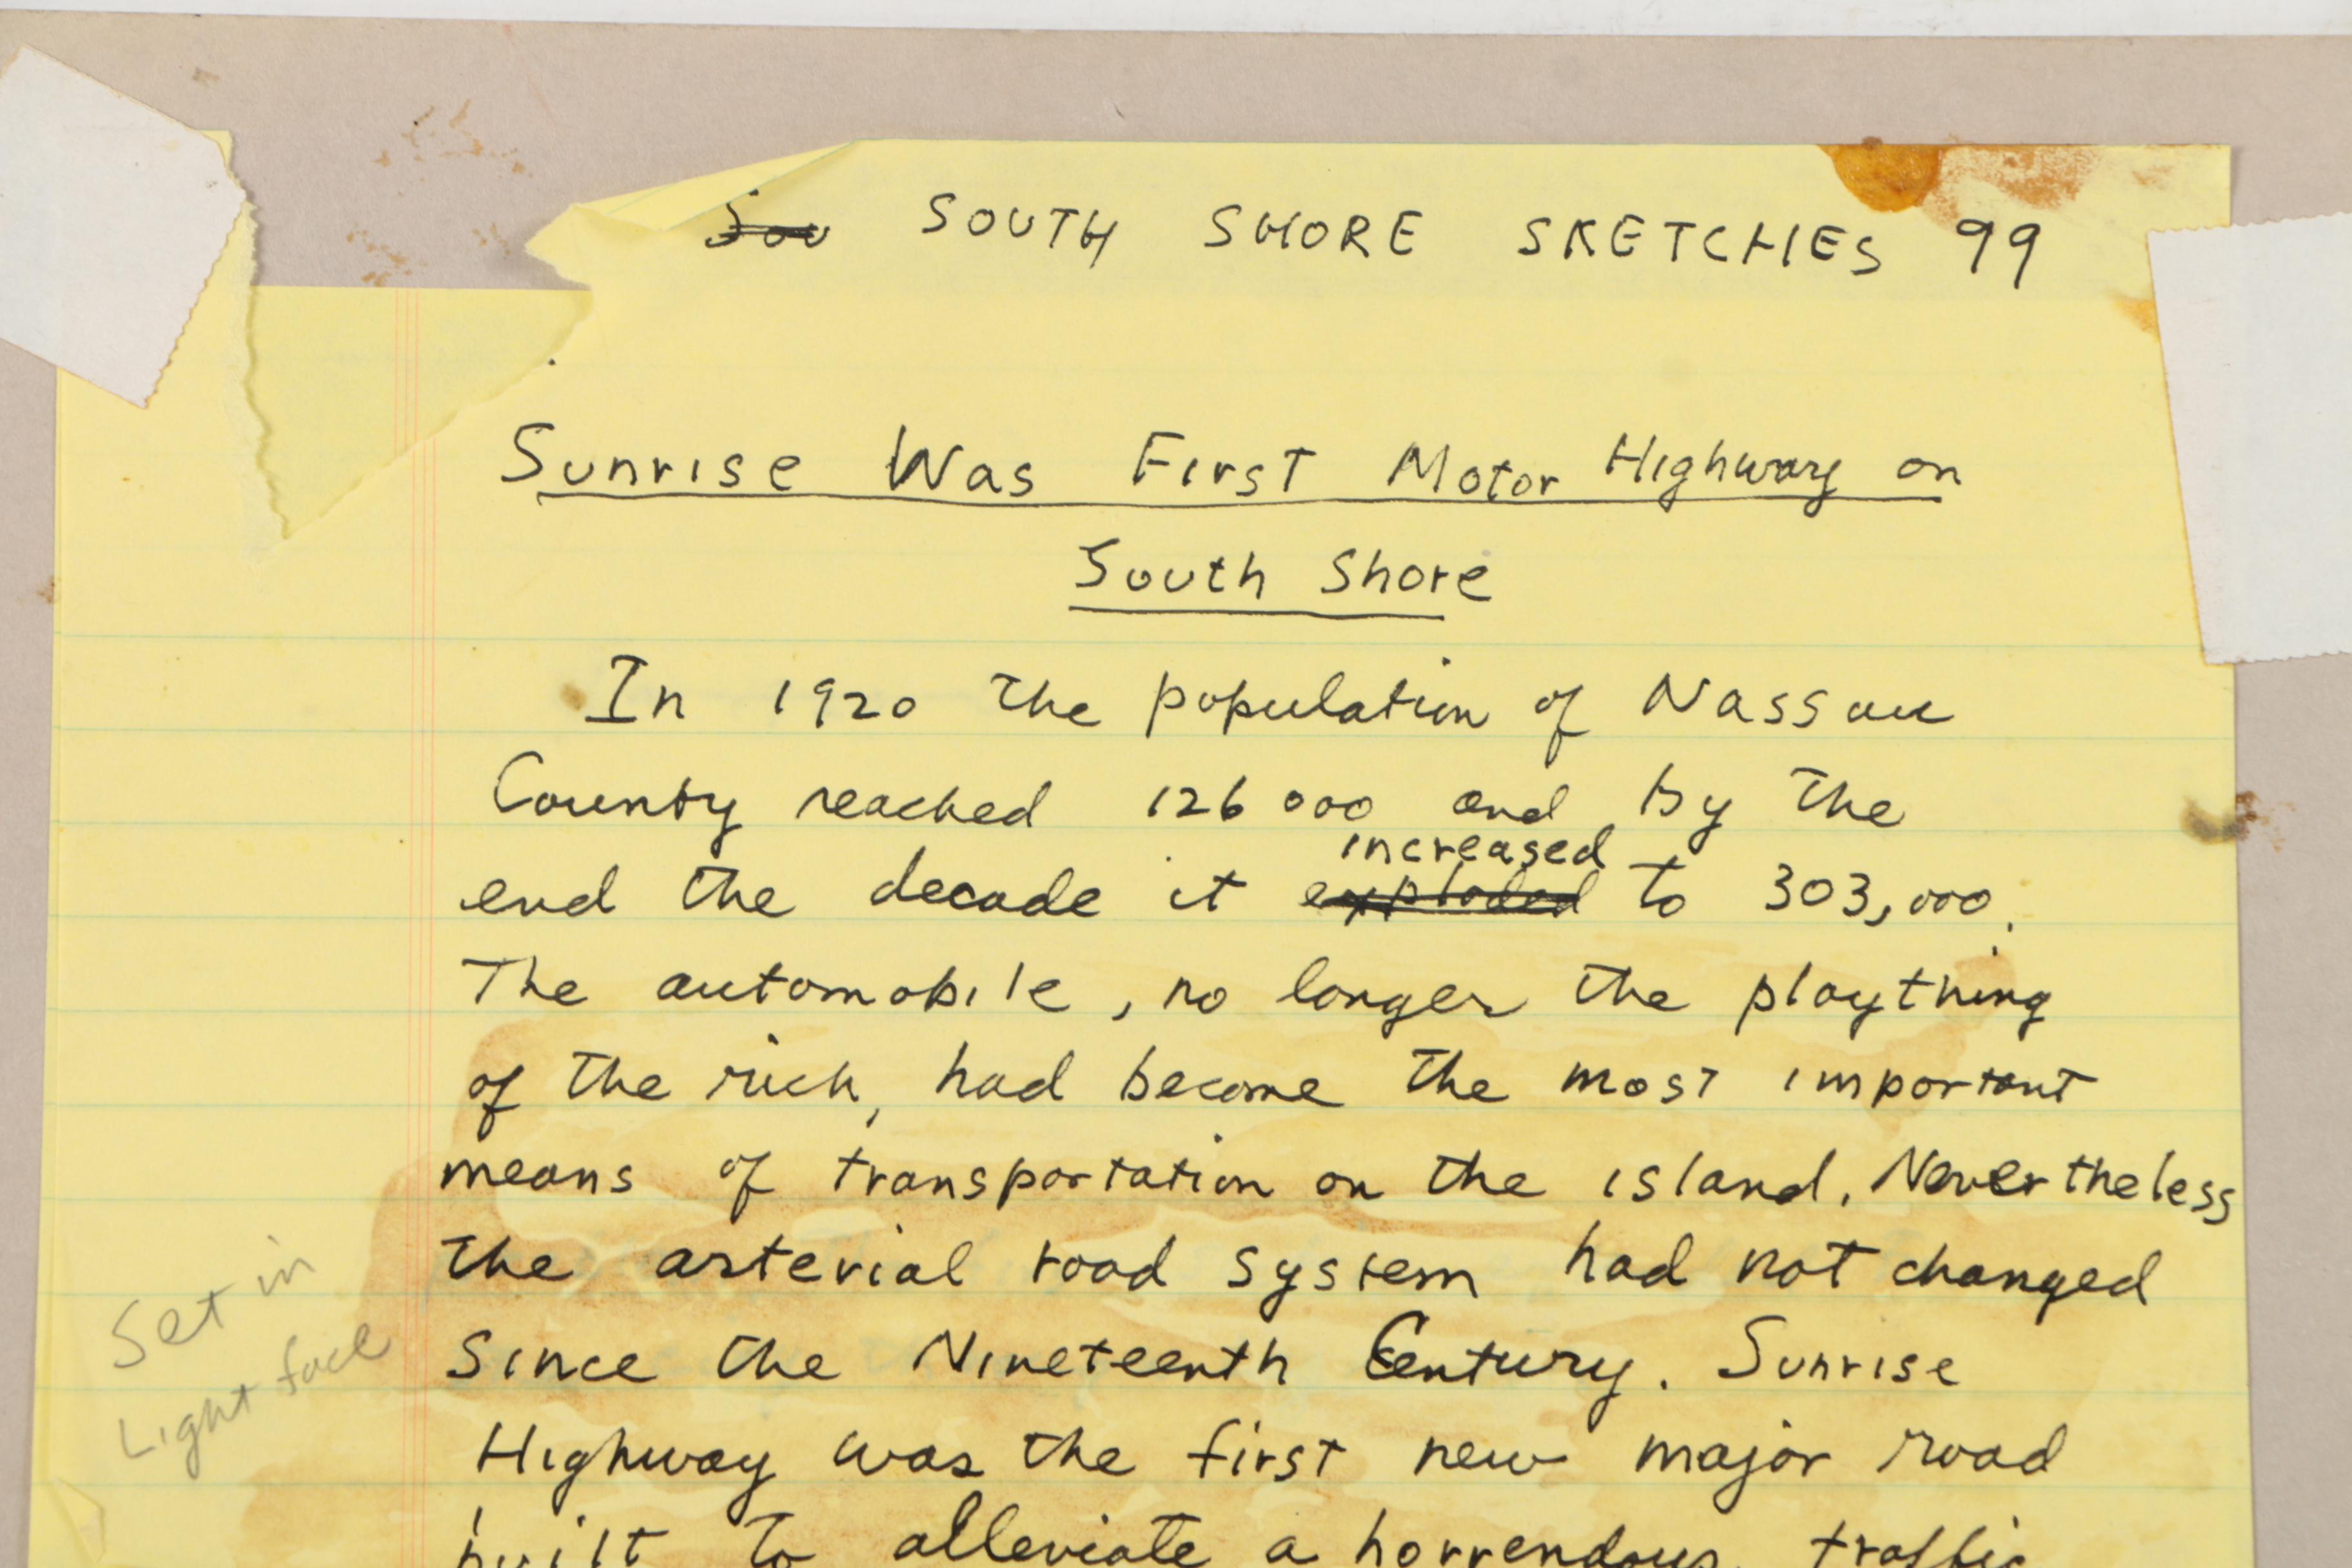 Sou SOUTH SHORE SKETCHES 99
Sunrise Was First Motor Highway on
South Shore
In 1920 the population of Nassau
County reached 126 000 and by the
increased
end the decade it exploded to 303,000.
The automobile, no longer the plaything
of the rich, had become the most important
means of transportation on the island. Nevertheless
the arterial road system had not changed
Since the Nineteenth Century. Sunrise
Highway was the first new major road
built to alleviate a horrendous traffic
Set in
Light face